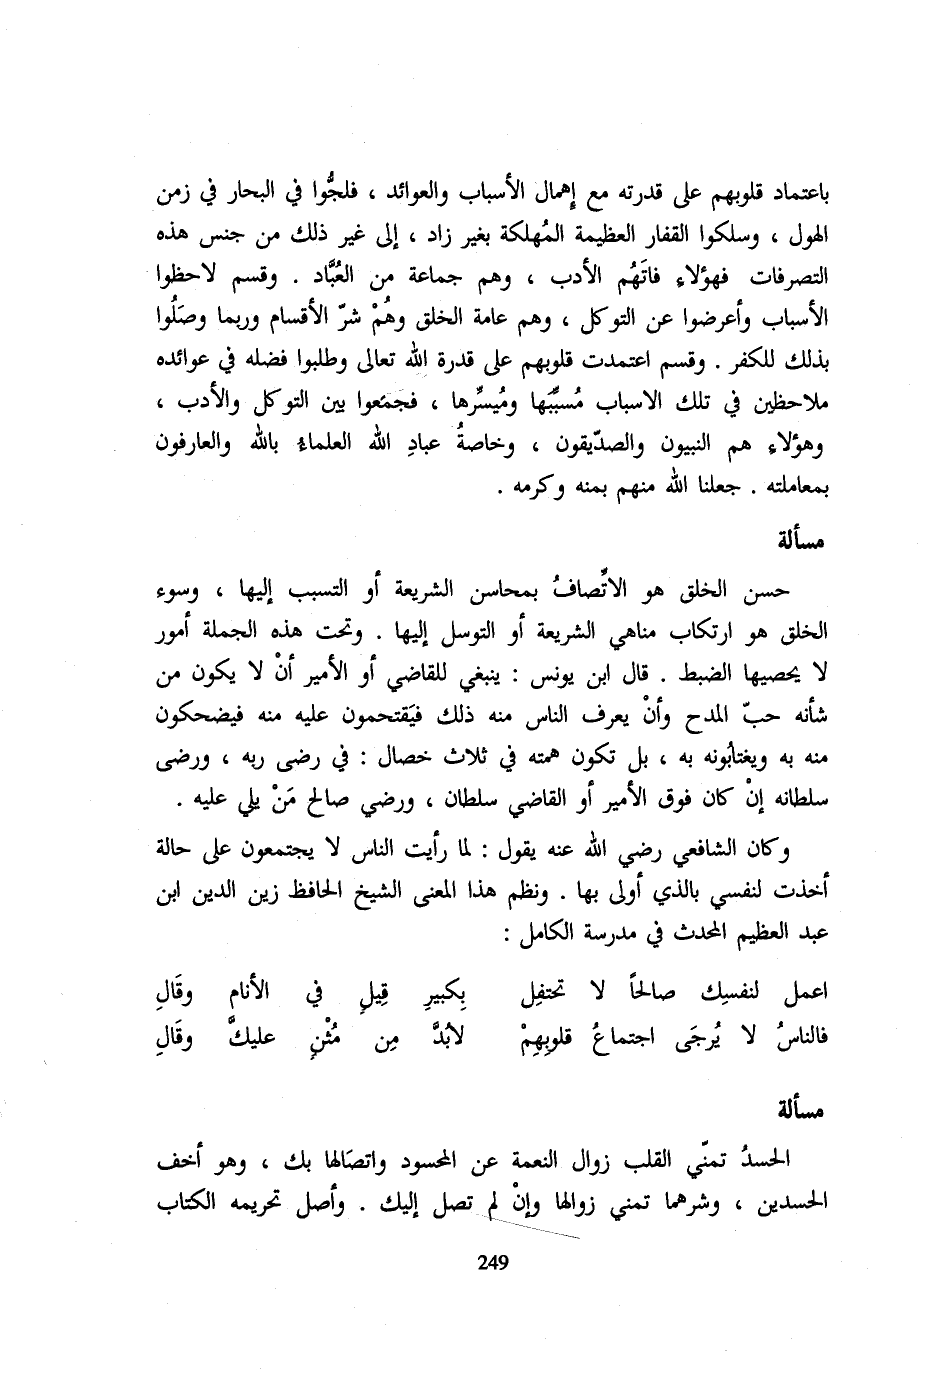 باعتماد قلوبهم على قدرته مع إهمال الأسباب والعوائد ، فلجُّوا في البحار في زمن
الهول ، وسلكوا القفار العظيمة المُهلكة بغير زاد ، إلى غير ذلك من جنس هذه
التصرفات فهؤلاء فاتَهُم الأدب ، وهم جماعة من العُبَّاد . وقسم لاحظوا
الأسباب وأعرضوا عن التوكل ، وهم عامة الخلق وهُمْ شرّ الأقسام وربما وصَلُوا
بذلك للكفر . وقسم اعتمدت قلوبهم على قدرة الله تعالى وطلبوا فضله في عوائده
ملاحظين في تلك الاسباب مُسبِّبَها ومُيسِّرها ، فجمَعوا بين التوكل والأدب ،
وهؤلاء هم النبيون والصدّيقون ، وخاصةُ عبادِ الله العلماءُ بالله والعارفون
بمعاملته . جعلنا الله منهم بمنه وكرمه .
مسألة
حسن الخلق هو الاتِّصافُ بمحاسن الشريعة أو التسبب إليها ، وسوء
الخلق هو ارتكاب مناهي الشريعة أو التوسل إليها . وتحت هذه الجملة أمور
لا يحصيها الضبط . قال ابن يونس : ينبغي للقاضي أو الأمير أنْ لا يكون من
شأنه حبّ المدح وأنْ يعرف الناس منه ذلك فيَقتحمون عليه منه فيضحكون
منه به ويغتأبُونه به ، بل تكون همته في ثلاث خصال : في رضى ربه ، ورضى
سلطانه إنْ كان فوق الأمير أو القاضي سلطان ، ورضي صالح مَنْ يلي عليه .
وكان الشافعي رضي الله عنه يقول : لما رأيت الناس لا يجتمعون على حالة
أخذت لنفسي بالذي أولى بها . ونظم هذا المعنى الشيخ الحافظ زين الدين ابن
عبد العظيم المحدث في مدرسة الكامل :
اعمل لنفسِك صالحاً لا تحتفِل بِكبيرِ قِيلٍ في الأنام وقَالِ
فالناسُ لا يُرجَى اجتماعُ قلوبِهِمْ لابُدَّ مِن مُثْنٍ عليكَّ وقَالِ
مسألة
الحسدُ تمنّي القلب زوال النعمة عن المحسود واتصَالها بك ، وهو أخف
الحسدين ، وشرهما تمني زوالها وإنْ لم تصل إليك . وأصل تحريمه الكتاب
249